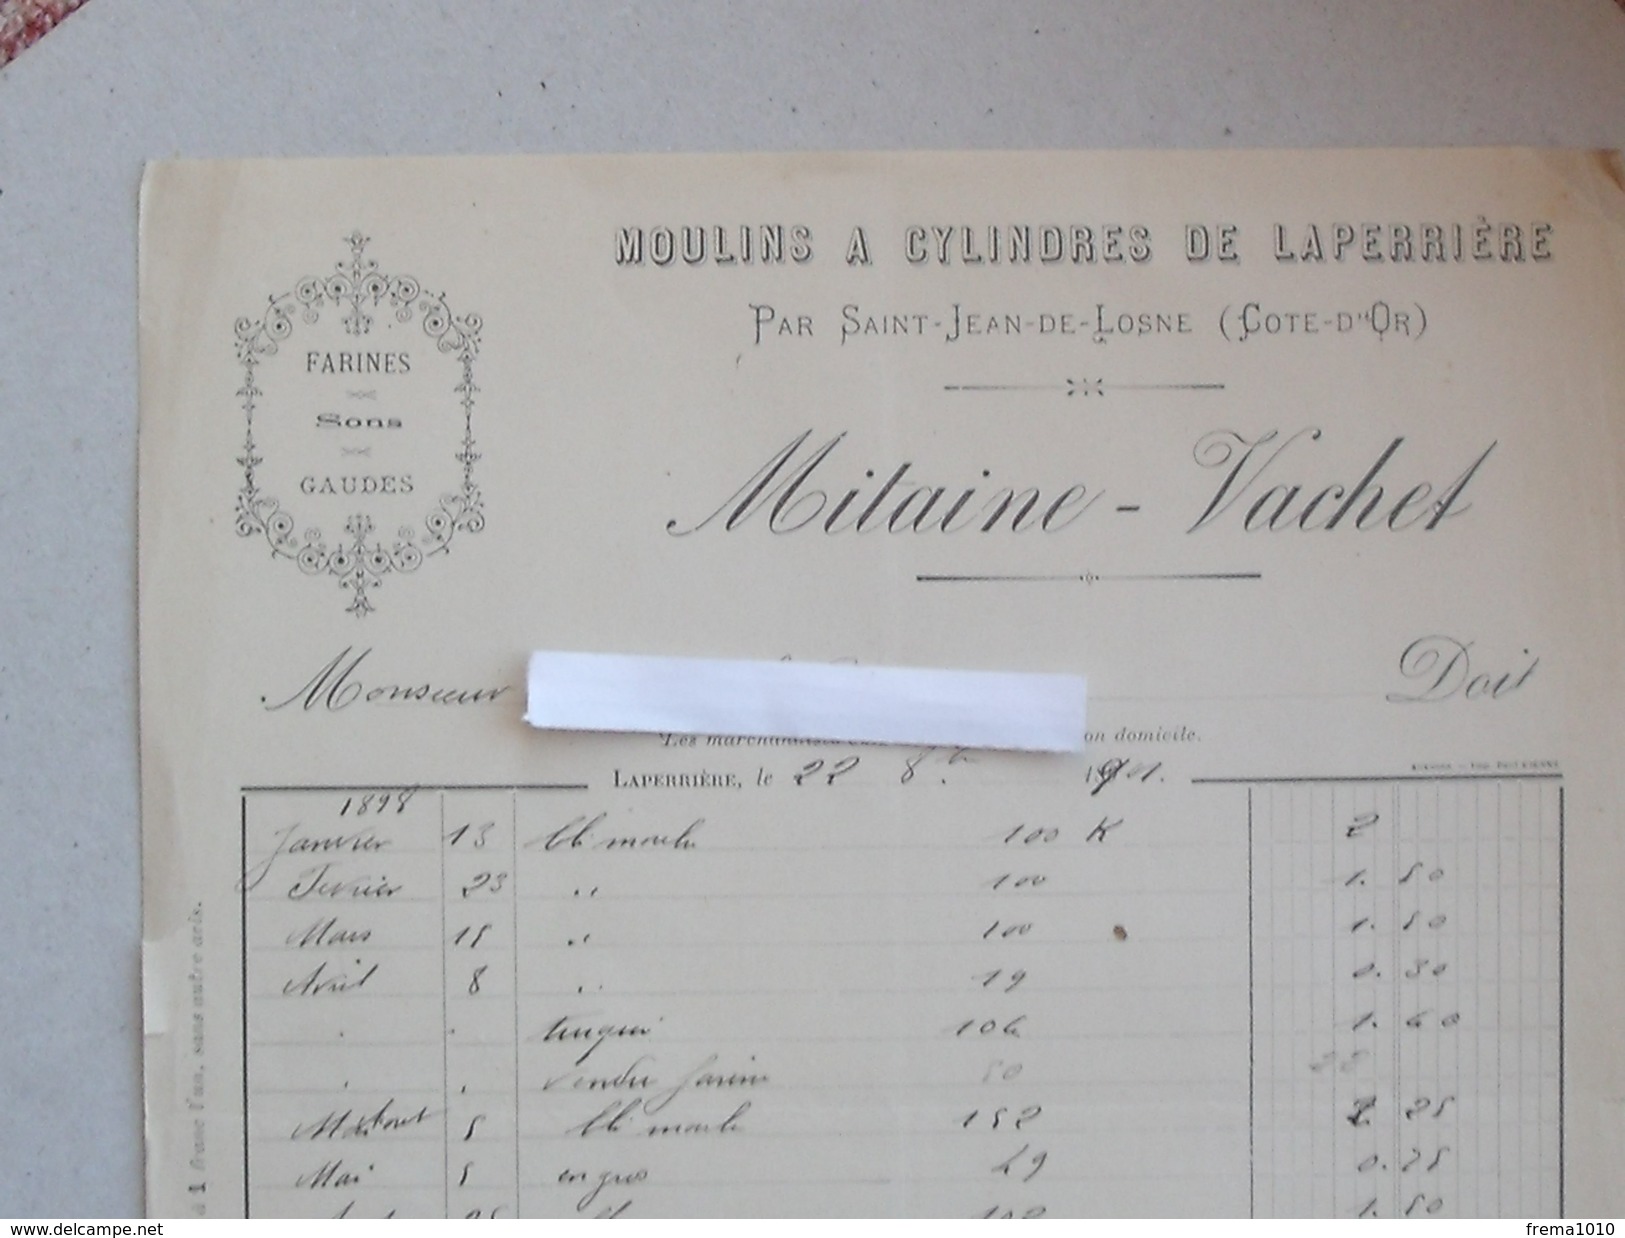 MOULINS A CYLINDRES DE LAPERRIÈRE
PAR SAINT-JEAN-DE-LOSNE (COTE-D'OR)
FARINES
Sons
GAUDES
Mitaine - Vachet
Monsieur Doit
Les marchandises on domicile.
LAPERRIÈRE, le 22 8bre 1901.
1898
Janvier 13 blé moulu 100 K 2
Fevrier 23 " 100 1. 50
Mars 15 " 100 1. 50
Avril 8 " 19 0. 30
" " 106 1. 60
" " vendu farine 50
5 blé moulu 152 2 25
Mai 5 en gros 49 0. 75
102 1. 50
à 1 franc l'an, sans autre avis.
www.delcampe.net
frema1010